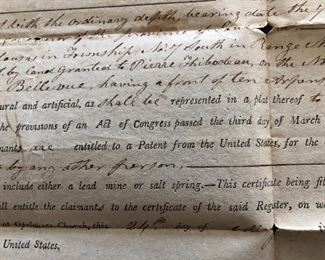 with the ordinary depth, bearing date the
in Township No. 7 South in Range
by land granted to Pierre Thibodeau, on the No
Bellevue, having a front of ten arpens
ural and artificial, as shall be represented in a plat thereof to
the provisions of an Act of Congress passed the third day of March
mants are entitled to a Patent from the United States, for the
by any other person.
include either a lead mine or salt spring.—This certificate being fil
all entitle the claimants to the certificate of the said Register, on w
Church, this 24th day of
United States,